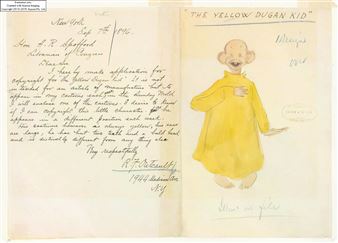 New York
Sep 7th 1896.
Hon A. R. Spofford
Librarian of Congress
Dear Sir
I hereby make application for
copyright for the Yellow Dugan Kid. It is not
intended for an article of manufacture but to
appear in my cartoons each week in the Sunday World.
I will enclose one of the cartoons. I desire to know
if I can copyright this little character as he
appears in a different position each week.
His costume however is always yellow, his ears
are large, he has but two teeth and a bald head
and is distinctly different from any thing else.
Very respectfully
R. F. Outcault
1944 Madison Ave
N.Y.
"THE YELLOW DUGAN KID"